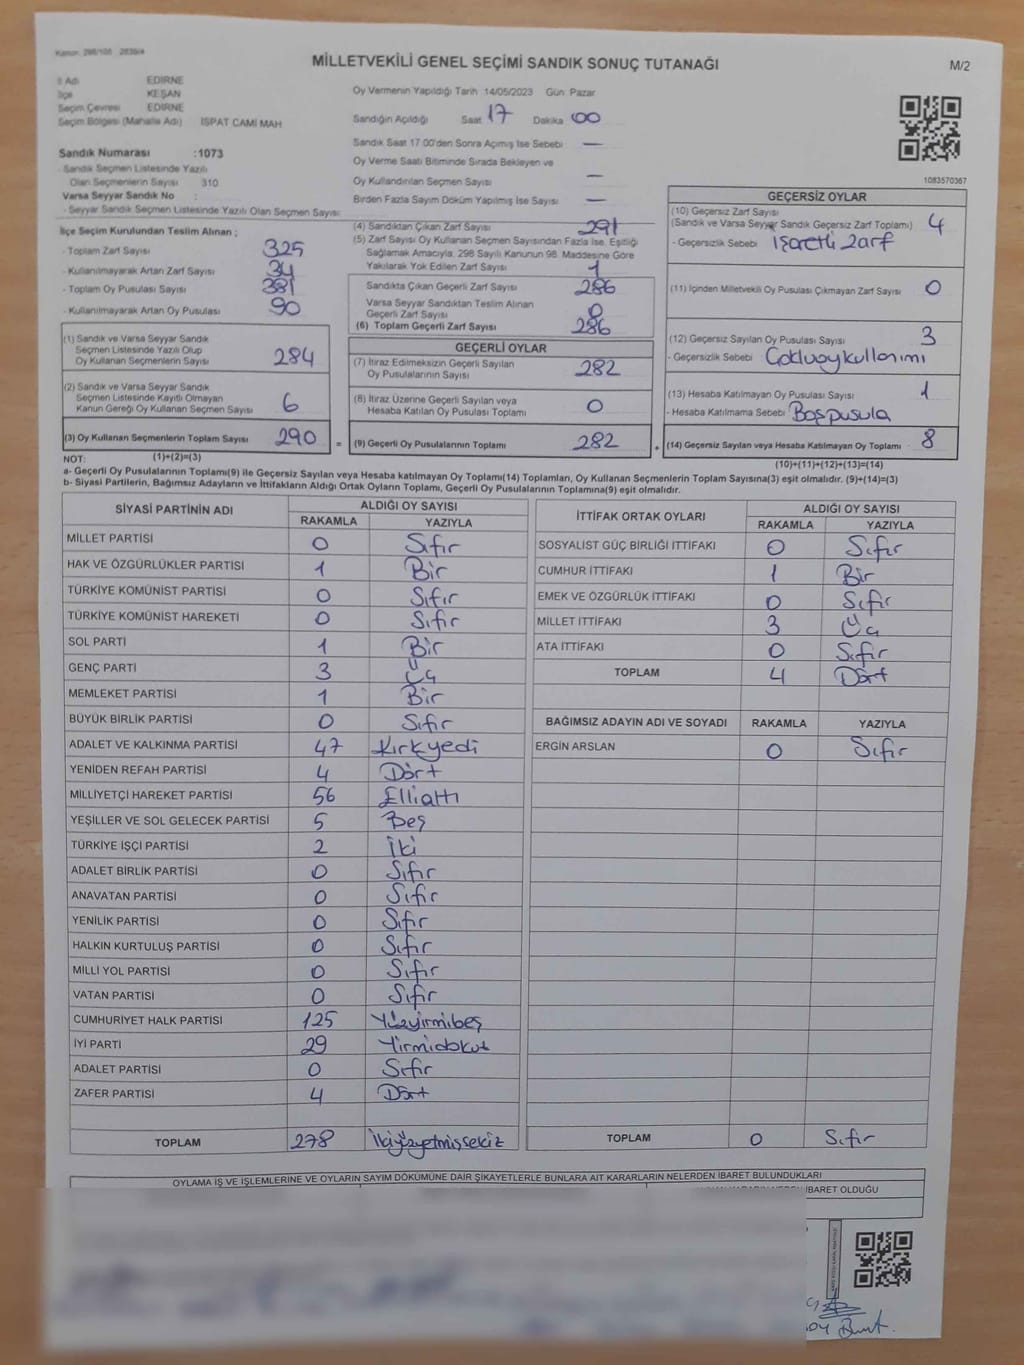 Kanun: 298/105 2839/4
MİLLETVEKİLİ GENEL SEÇİMİ SANDIK SONUÇ TUTANAĞI
M/2
İl Adı EDİRNE
İlçe KEŞAN
Seçim Çevresi EDİRNE
Seçim Bölgesi (Mahalle Adı) İSPAT CAMİ MAH
Oy Vermenin Yapıldığı Tarih :14/05/2023 Gün: Pazar
Sandığın Açıldığı Saat 17 Dakika 00
Sandık Saat 17:00'den Sonra Açımış İse Sebebi —
Oy Verme Saati Bitiminde Sırada Bekleyen ve
Oy Kullandırılan Seçmen Sayısı —
Birden Fazla Sayım Döküm Yapılmış İse Sayısı —
Sandık Numarası :1073
- Sandık Seçmen Listesinde Yazılı
Olan Seçmenlerin Sayısı 310
Varsa Seyyar Sandık No :
- Seyyar Sandık Seçmen Listesinde Yazılı Olan Seçmen Sayısı:
İlçe Seçim Kurulundan Teslim Alınan ;
- Toplam Zarf Sayısı 325
- Kullanılmayarak Artan Zarf Sayısı 34
- Toplam Oy Pusulası Sayısı 381
- Kullanılmayarak Artan Oy Pusulası 90
(1) Sandık ve Varsa Seyyar Sandık
Seçmen Listesinde Yazılı Olup
Oy Kullanan Seçmenlerin Sayısı 284
(2) Sandık ve Varsa Seyyar Sandık
Seçmen Listesinde Kayıtlı Olmayan
Kanun Gereği Oy Kullanan Seçmen Sayısı 6
(3) Oy Kullanan Seçmenlerin Toplam Sayısı 290 =
(4) Sandıktan Çıkan Zarf Sayısı 291
(5) Zarf Sayısı Oy Kullanan Seçmen Sayısından Fazla İse, Eşitliği
Sağlamak Amacıyla, 298 Sayılı Kanunun 98. Maddesine Göre
Yakılarak Yok Edilen Zarf Sayısı 1
Sandıkta Çıkan Geçerli Zarf Sayısı 286
Varsa Seyyar Sandıktan Teslim Alınan
Geçerli Zarf Sayısı 0
(6) Toplam Geçerli Zarf Sayısı 286
GEÇERLİ OYLAR
(7) İtiraz Edilmeksizin Geçerli Sayılan
Oy Pusulalarının Sayısı 282
(8) İtiraz Üzerine Geçerli Sayılan veya
Hesaba Katılan Oy Pusulası Toplamı 0
(9) Geçerli Oy Pusulalarının Toplamı 282
1083570367
GEÇERSİZ OYLAR
(10) Geçersiz Zarf Sayısı
(Sandık ve Varsa Seyyar Sandık Geçersiz Zarf Toplamı) 4
- Geçersizlik Sebebi İşaretli zarf
(11) İçinden Milletvekili Oy Pusulası Çıkmayan Zarf Sayısı 0
(12) Geçersiz Sayılan Oy Pusulası Sayısı 3
- Geçersizlik Sebebi Çokluoykullanımı
(13) Hesaba Katılmayan Oy Pusulası Sayısı 1
- Hesaba Katılmama Sebebi Boşpusula
(14) Geçersiz Sayılan veya Hesaba Katılmayan Oy Toplamı 8
NOT: (1)+(2)=(3)
(10)+(11)+(12)+(13)=(14)
a- Geçerli Oy Pusulalarının Toplamı(9) ile Geçersiz Sayılan veya Hesaba katılmayan Oy Toplamı(14) Toplamları, Oy Kullanan Seçmenlerin Toplam Sayısına(3) eşit olmalıdır. (9)+(14)=(3)
b- Siyasi Partilerin, Bağımsız Adayların ve İttifakların Aldığı Ortak Oyların Toplamı, Geçerli Oy Pusulalarının Toplamına(9) eşit olmalıdır.
SİYASİ PARTİNİN ADI ALDIĞI OY SAYISI
RAKAMLA YAZIYLA
MİLLET PARTİSİ 0 Sıfır
HAK VE ÖZGÜRLÜKLER PARTİSİ 1 Bir
TÜRKİYE KOMÜNİST PARTİSİ 0 Sıfır
TÜRKİYE KOMÜNİST HAREKETİ 0 Sıfır
SOL PARTİ 1 Bir
GENÇ PARTİ 3 Üç
MEMLEKET PARTİSİ 1 Bir
BÜYÜK BİRLİK PARTİSİ 0 Sıfır
ADALET VE KALKINMA PARTİSİ 47 Kırkyedi
YENİDEN REFAH PARTİSİ 4 Dört
MİLLİYETÇİ HAREKET PARTİSİ 56 Ellialtı
YEŞİLLER VE SOL GELECEK PARTİSİ 5 Beş
TÜRKİYE İŞÇİ PARTİSİ 2 İki
ADALET BİRLİK PARTİSİ 0 Sıfır
ANAVATAN PARTİSİ 0 Sıfır
YENİLİK PARTİSİ 0 Sıfır
HALKIN KURTULUŞ PARTİSİ 0 Sıfır
MİLLİ YOL PARTİSİ 0 Sıfır
VATAN PARTİSİ 0 Sıfır
CUMHURİYET HALK PARTİSİ 125 Yüzyirmibeş
İYİ PARTİ 29 Yirmidokuz
ADALET PARTİSİ 0 Sıfır
ZAFER PARTİSİ 4 Dört
TOPLAM 278 İkiyüzyetmişsekiz
İTTİFAK ORTAK OYLARI ALDIĞI OY SAYISI
RAKAMLA YAZIYLA
SOSYALİST GÜÇ BİRLİĞİ İTTİFAKI 0 Sıfır
CUMHUR İTTİFAKI 1 Bir
EMEK VE ÖZGÜRLÜK İTTİFAKI 0 Sıfır
MİLLET İTTİFAKI 3 Üç
ATA İTTİFAKI 0 Sıfır
TOPLAM 4 Dört
BAĞIMSIZ ADAYIN ADI VE SOYADI RAKAMLA YAZIYLA
ERGİN ARSLAN 0 Sıfır
TOPLAM 0 Sıfır
OYLAMA İŞ VE İŞLEMLERİNE VE OYLARIN SAYIM DÖKÜMÜNE DAİR ŞİKAYETLERLE BUNLARA AİT KARARLARIN NELERDEN İBARET BULUNDUKLARI
İBARET OLDUĞU